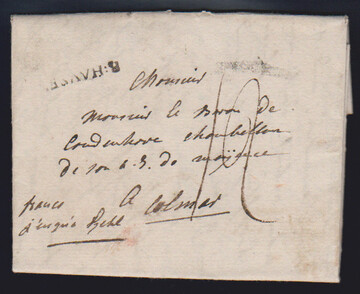 R: HAUSE
12
Monsieur
Monsieur le Baron de
Coudenhove chambellan
de son a. E. de mayence
a Colmar
franco
jusqu'a Kehl